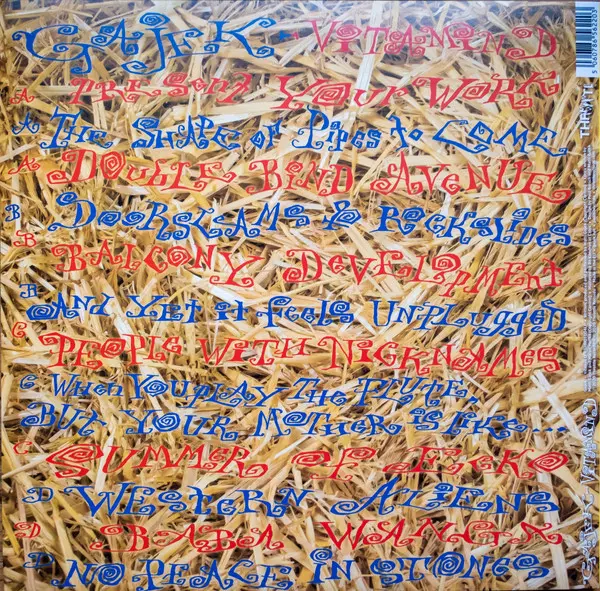 GAJEK - VITAMIN D
A PRESENT YOUR WORK
A THE SHAPE OF PIPES TO COME
A DOUBLE BIND AVENUE
B DOORSLAMS & ROCKSLIDES
B BALCONY DEVELOPMENT
B AND YET it FEELS UNPLUGGED
C PEOPLE WITH NICKNAMES
C WHEN YOU PLAY THE FLUTE,
BUT YOUR MOTHER is LIKE....
C SUMMER OF ECKO
D WESTERN ALIENS
D BABA WANGA
D NO PEACE IN STONES
5 060788 582203